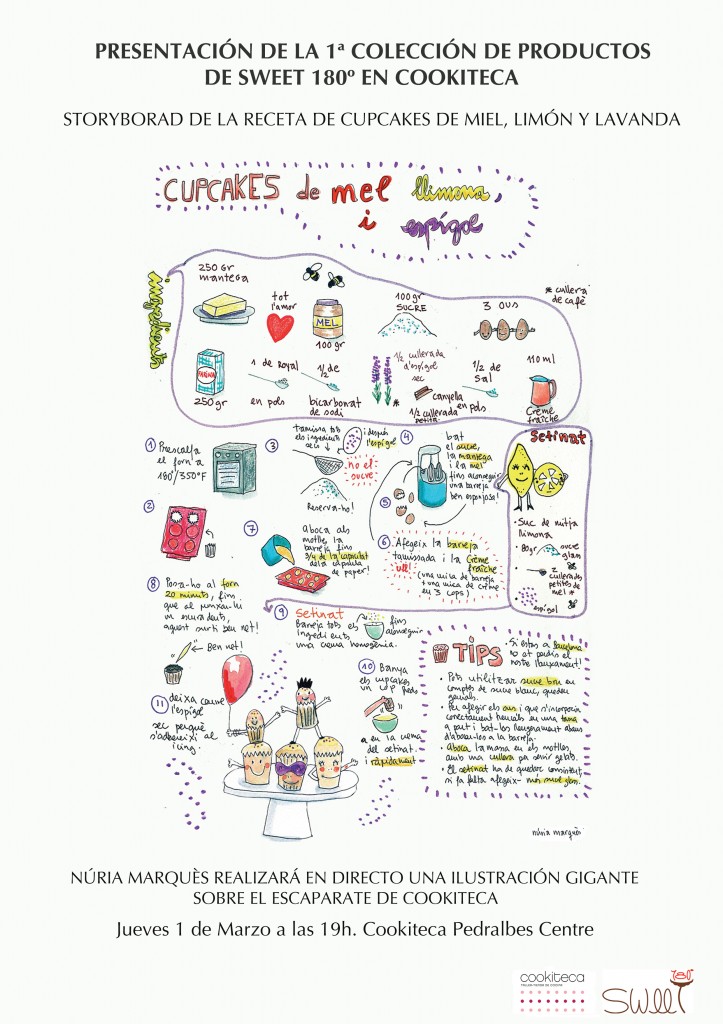 PRESENTACIÓN DE LA 1ª COLECCIÓN DE PRODUCTOS
DE SWEET 180º EN COOKITECA
STORYBORAD DE LA RECETA DE CUPCAKES DE MIEL, LIMÓN Y LAVANDA
CUPCAKES de mel llimona,
i espígol
ingredients
250 gr
mantega
tot
l'amor
MEL
100 gr
100 gr
SUCRE
3 ous
* cullera
de cafè
FARINA
250 gr
1 de Royal
en pols
1/2 de
bicarbonat
de sodi
1/2 cullerada
d'espígol
sec
*
canyella
en pols
1/2 cullerada
petita
1/2 de
sal
110 ml
Crème
fraîche
1 Prescalfa
el forn a
180º/350ºF
2
3 tamissa tots
els ingredients
secs
i després
l'espígol
no el
sucre
Reserva-ho!
4 bat
el sucre,
la mantega
i la mel
fins aconseguir
una barreja
ben esponjosa!
5
6 Afegeix la barreja
tamissada i la Crème
fraîche
ull!
(una mica de barreja
+ una mica de crème
en 3 cops)
7 Aboca als
motlle la
barreja fins
3/4 de la capacitat
de la càpsula
de paper!
8 Posa-ho al forn
20 minuts, fins
que al punxar-hi
un escuradents,
aquest surti ben net!
Ben net!
Setinat
• Suc de mitja
llimona
• 80gr sucre
glas
• 2
cullerades
petites de
mel *
• espígol
9 Setinat
Barreja tots els
ingredients
fins
aconseguir
una crema homogènia.
10 Banya
els cupcakes
un cop freds
a en la crema
del setinat.
i ràpidament
11 deixa caure
l'espígol
sec perquè
s'adhereixi al
icing.
TIPS
• Si estàs a Barcelona
no et perdis el
nostre llançament!
• Pots utilitzar sucre bru en
comptes de sucre blanc, queden
genials.
• Per afegir els ous i que s'incorporin
correctament heu de
a part i bat-los lleugerament abans
d'abocar-los a la barreja.
• Aboca la massa en els motlles
amb una cullera per servir gelats.
• El setinat ha de quedar consistent,
si fa falta afegeix-hi més sucre glas.
núria marquès
NÚRIA MARQUÈS REALIZARÁ EN DIRECTO UNA ILUSTRACIÓN GIGANTE
SOBRE EL ESCAPARATE DE COOKITECA
Jueves 1 de Marzo a las 19h. Cookiteca Pedralbes Centre
cookiteca
180º
SWEET